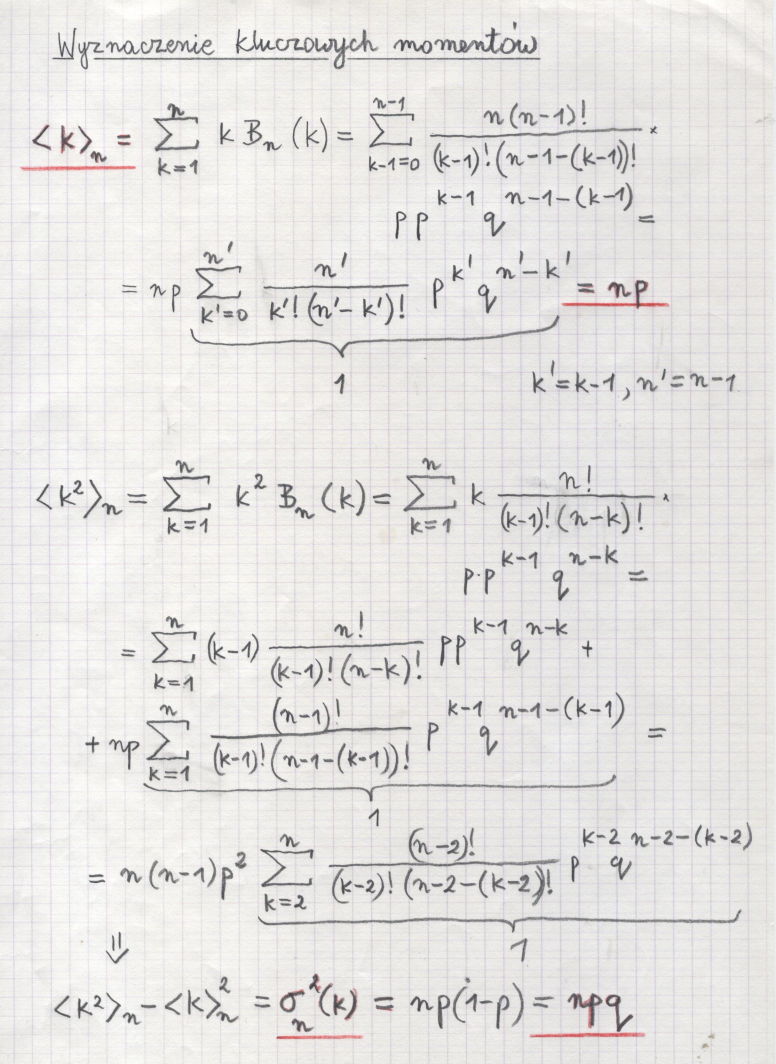 Wyznaczenie kluczowych momentów
<k>_n = \sum_{k=1}^{n} k B_n(k) = \sum_{k-1=0}^{n-1} \frac{n(n-1)!}{(k-1)!(n-1-(k-1))!} ×
p p^{k-1} q^{n-1-(k-1)} =
= np \sum_{k'=0}^{n'} \frac{n'}{k'!(n'-k')!} p^{k'} q^{n'-k'} = np
1
k'=k-1, n'=n-1
<k^2>_n = \sum_{k=1}^{n} k^2 B_n(k) = \sum_{k=1}^{n} k \frac{n!}{(k-1)!(n-k)!} ×
p·p^{k-1} q^{n-k} =
= \sum_{k=1}^{n} (k-1) \frac{n!}{(k-1)!(n-k)!} pp^{k-1} q^{n-k} +
+ np \sum_{k=1}^{n} \frac{(n-1)!}{(k-1)!(n-1-(k-1))!} p^{k-1} q^{n-1-(k-1)} =
1
= n(n-1)p^2 \sum_{k=2}^{n} \frac{(n-2)!}{(k-2)!(n-2-(k-2))!} p^{k-2} q^{n-2-(k-2)}
1
⇓
<k^2>_n - <k>_n^2 = σ_n^2(k) = np(1-p) = npq